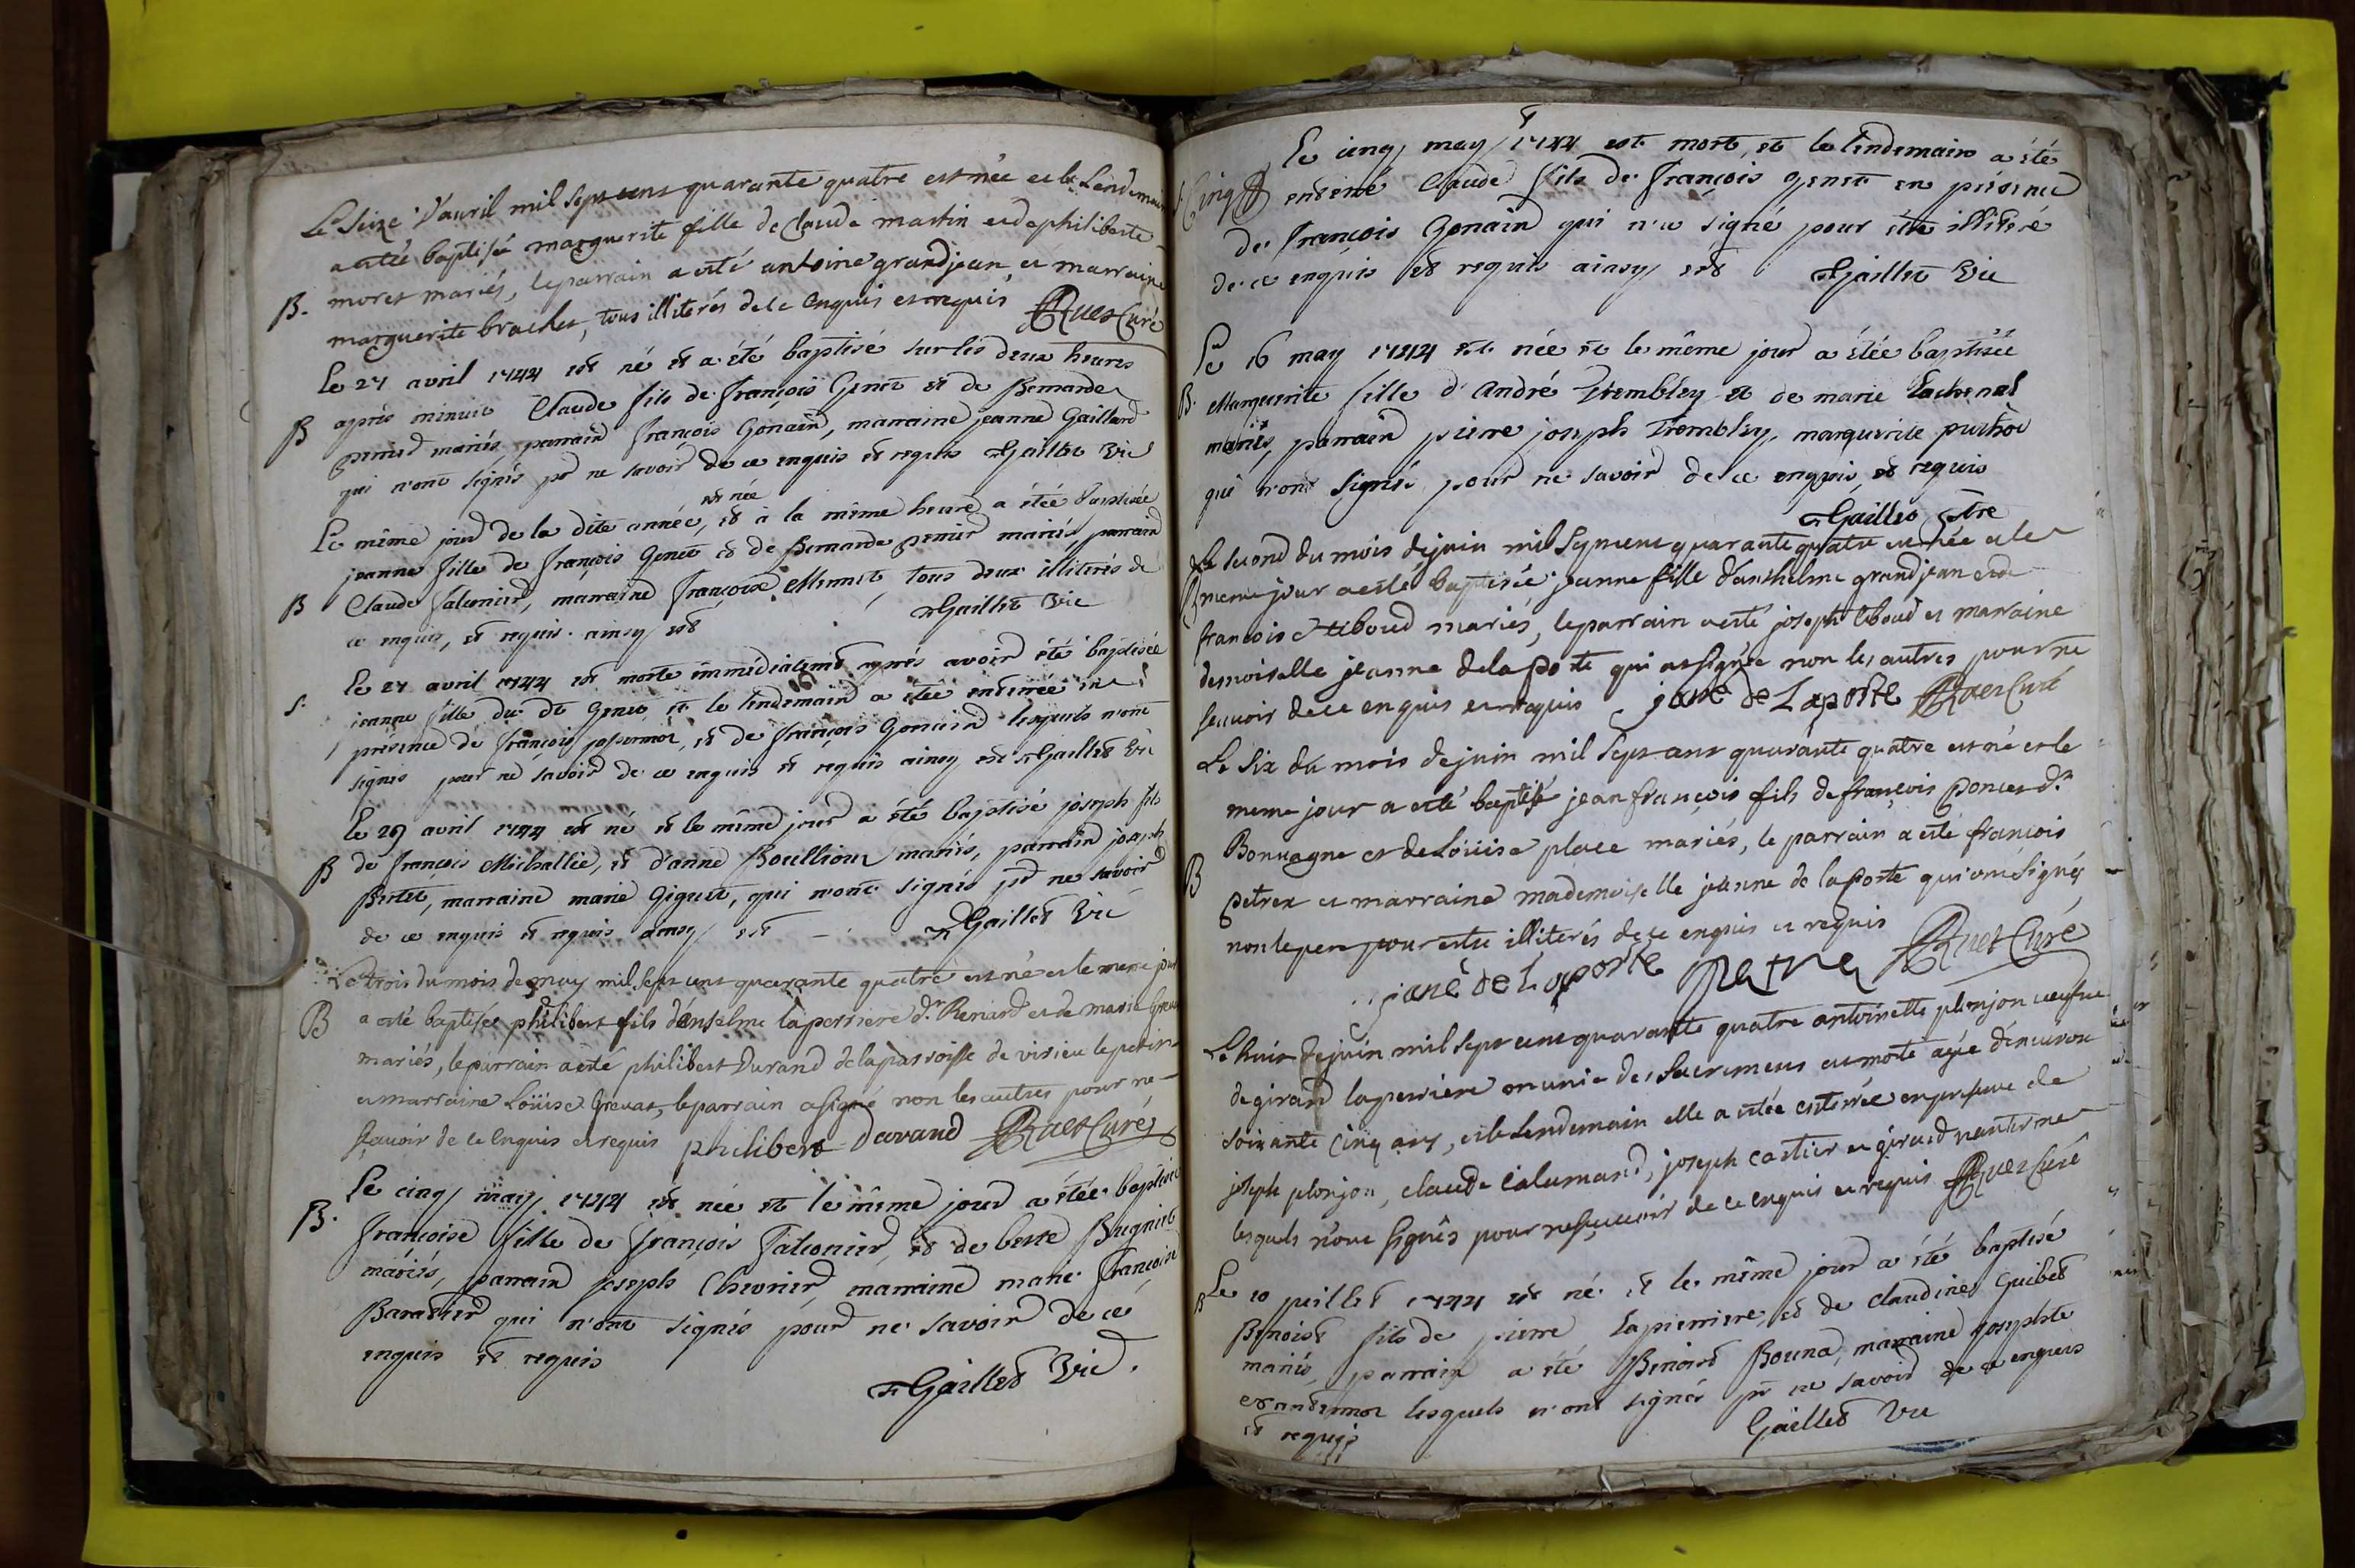 Le seize d'avril mil sept cent quarante quatre est née et le Lendemain
a esté baptisée marguerite fille de Claude martin et de philiberte
B. moret mariés, le parrain a esté antoine grandjean, et marraine
marguerite brachet, tous illiterés de ce Enquis et requis Ruet Curé
Le 27 avril 1744 est né et a été baptisé sur les deux heures
après minuit Claude fils de François Genet et de Bernarde
B premier mariés parrain François Gonain, marraine jeanne Gaillard
qui n'ont signés pr ne savoir de ce enquis et requis Gaillet Vic
est née
Le même jour de la dite année, et à la même heure a étée baptisée
jeanne fille de François Genet et de Bernarde premier mariés parrain
B Claude falconier, marraine Françoise Monnet, tous deux illiterés de
ce enquis, et requis ainsy est Gaillet Vic
Le 27 avril 1744 est morte immédiatemt après avoir été baptisée
S. jeanne fille du dt Genet et le lendemain a étée enterrée en
présence de François, et de François Gonain lesquels n'ont
signés pour ne savoir de ce enquis et requis ainsy est Gaillet Vic
Le 29 avril 1744 est né et le même jour a été baptisé joseph fils
B de François Michallié, et d'anne Boullioux mariés, parrain joseph
Bertet, marraine marie Giguet, qui n'ont signés pr ne savoir
de ce enquis et requis ainsy est Gaillet Vic
Le trois du mois de may mil sept cent quarante quatre est né et le meme jour
B a esté baptisée philibert fils d'anselme laperriere dt Renard et de marie Grevat
mariés, le parrain a esté philibert Durand de la parroisse de virieu le petit
et marraine Loüise Grevat, le parrain a signé non les autres pour ne
sçavoir de ce Enquis et requis philibert Davand Ruet Curé
Le cinq may 1744 est née et le même jour a étée baptisée
B. Françoise fille de François Falconier, et de Bugniet
mariés, parrain joseph Chevrier, marraine marie Françoise
Baratier qui n'ont signés pour ne savoir de ce
enquis et requis
Gaillet Vic.
Le cinq may 1744 est mort, et le lendemain a été
enterré Claude fils de François Genet en présence
de François Gonain qui n'a signé pour être illiteré
de ce enquis et requis ainsy est Gaillet Vic
Le 16 may 1744 est née et le même jour a étée baptisée
B. Marguerite fille d'André Trembley et de marie Lachenal
mariés, parrain pierre joseph Trembley, marguerite puthod
qui n'ont signés pour ne savoir de ce enquis, et requis
Gaillet
Le second du mois de juin mil sept cent quarante quatre est née et le
B meme jour a esté baptisée jeanne fille d'anthelme grandjean et de
francoise tiboud mariés, le parrain a esté joseph tiboud et marraine
demoiselle jeanne de la poste qui a signée non les autres pour ne
scavoir de ce enquis et requis jane de Laposte Ruet Curé
Le six du mois de juin mil sept cent quarante quatre est né et le
meme jour a esté baptisé jean françois fils de françois poncet dt
Bonvagne et de Loüise place mariés, le parrain a esté francois
B petren et marraine mademoiselle jeanne de la poste qui ont signés
non le pere pour estre illiterés de ce enquis et requis Ruet Curé
jane de Laposte
Le huit de juin mil sept cent quarante quatre antoinette plonjon veufve
de girard laperriere munie des sacremens est morte agée d'environ
soixante cinq ans, et le lendemain elle a estée enterrée en presence de
joseph plonjon, claude calumard, joseph cartier et girard
lesquels n'ont signés pour ne sçavoir de ce enquis et requis Ruet Curé
B Le 10 juillet 1744 est né et le même jour a été baptisé
Benoist fils de pierre Lapierriere, et de claudine Guibet
mariés, parrain a été Benoist Bouna, marraine josephte
lesquels n'ont signés pr ne savoir de ce enquis
et requis Gaillet Vic